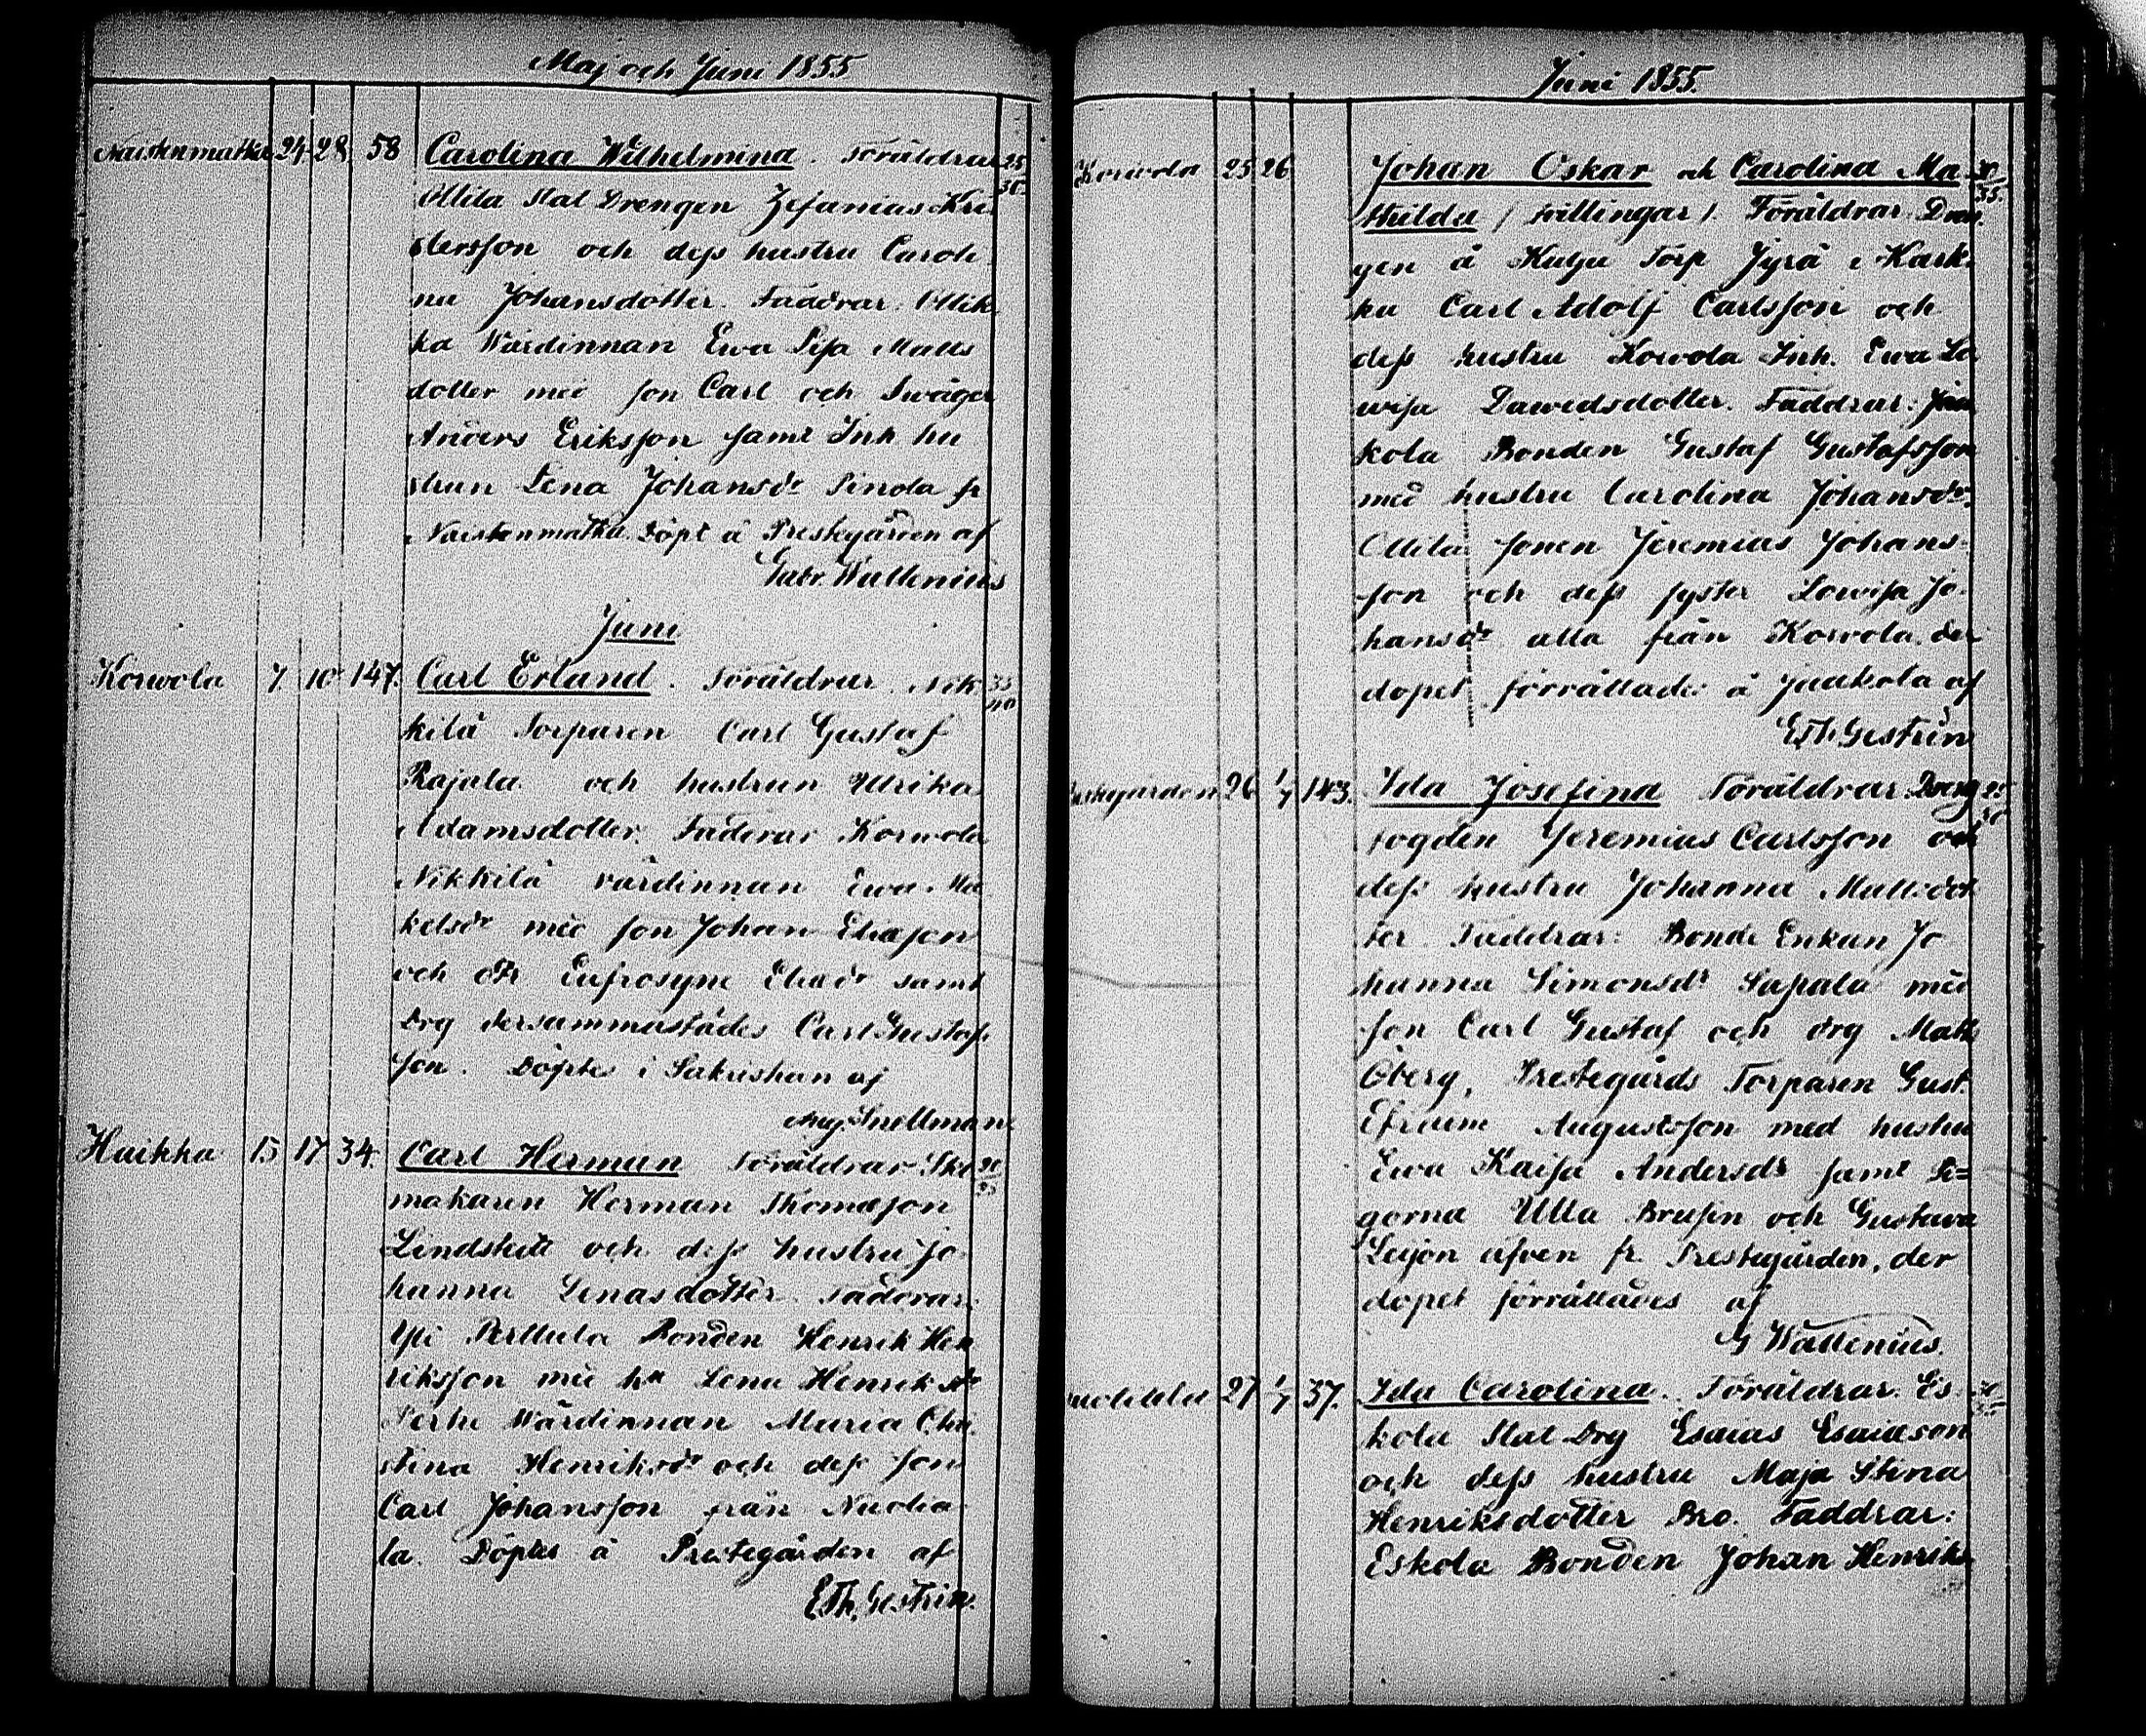 Maj och Juni 1855
Naistenmatka 24 28 58 Carolina Wilhelmina. Föräldrar 25
Ollila Stat Drengen Zefanias Kri- 30
stersson och dess hustru Caroli
na Johansdotter. Faddrar. Ollik
ka Wärdinnan Ewa Lisa Matts
dotter med son Carl och Swåger
Anders Eriksson samt Inh. hu
strun Lena Johansdr Sinola fr
Naistenmatka. Döpt å Prestegården af
Gabr. Wallenius
Juni
Korwola 7. 10 147. Carl Erland. Föräldrar. Nik 35
kilä Torparen Carl Gustaf 40
Rajala och hustrun Ulrika
Adamsdotter. Faddrar Korwola
Nikkilä värdinnan Ewa Mi
kelsdr med son Johan Eliasson
och dr Eufrosyne Eliaedr samt
Drg dersammastädes Carl Gustafs
son. Döptes i Sakristian af
Aug. Snellman
Haikka 15 17 34. Carl Herman Föräldrar Sko 20
makaren Herman Thomasson 25
Lindstedt och dess hustru Jo
hanna Lenasdotter. Faddrar.
Ypi Perttula Bonden Henrik Hen
riksson med ha Lena Henriksdr
Perhe Wärdinnan Maria Chri
stina Henriksdr och dess son
Carl Johansson från Nuolia
la. Döptes å Prestegården af
E.Th. Gestrin.
Juni 1855.
Korwola 25 26 Johan Oskar och Carolina Ma- 30
thilda / tvillingar /. Föräldrar. Dren. 35.
gen å Kulju Torp Jyrä i Kark-
ku Carl Adolf Carlsson och
dess hustru Korwola Inh. Ewa Lo
wisa Dawidsdotter. Faddrar: Jaa
kola Bonden Gustaf Gustafsson
med hustru Carolina Johansdr.
Ollila sonen Jeremias Johans-
son och dess syster Lowisa Jo-
hansdr alla från Korwola. der
dopet förrättades å Jaakola af
E.Th. Gestrin
26 1/7 143. Ida Josefina Föräldrar Dreng 25
fogden Jeremias Carlsson och 30
dess hustru Johanna Mattsdot
ter. Faddrar: Bonde Enkan Jo
hanna Simonsdr Sapala med
son Carl Gustaf och drg Matts
Öberg, Prestegårds Torparen Gust.
Efraim Augustsson med hustru
Ewa Kaisa Andersdr samt Pi=
gorna Ulla Brusin och Gustava
Leijon äfven fr. Prestegården, der
dopet förrättades af
G Wallenius.
27 1/7 37. Ida Carolina. Föräldrar. Es 30
kola Stat Drg Esaias Esaiasson 35
och dess hustru Maja Stina
Henriksdotter Bro. Faddrar:
Eskola Bonden Johan Henriks